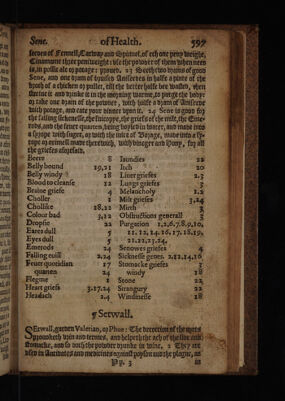 Sene. of Health. 597
seedes of Fennell, Carway and of ech one peny weight,
Cinamome three peniweight: use the powder of them when need
is, in possit ale or potage: proved. 23 Seeth two drams of good
Sene, and one dram of brused Anniseedes in halfe a pinte of the
broth of a chicken or pullet, till the better halfe bee wasted, then
streine it and drinke it in the morning warme, to purge the body:
or take one dram of the powder, with halfe a dram of Anniseeds
with potage, and eate your dinner upon it. 24 Sene is good for
the falling sicknesse, the the griefes of the milt, the Eme-
rods, and the feuer quartein, being boyled in water, and made into
a syrope with suger, or with the iuice of Borage, made into a sy-
rope or oximell made therewith, with vineger and Hony, for all
the griefes aforesaid.
Beere 8 Iaundies 22
Belly bound 19,21 Itch 20
Belly windy 18 Liver griefes 2.3
Blood to cleanse 12 Lungs griefes 3
Braine griefe 4 Melancholy 1.2
Choller 1 Milt griefes 3,24
Chollike 18.22 Mirth 3
Colour bad 3,12 Obstructions generall 3
Dropsie 22 Purgation 1,2,6,7.8,9,10,
Eares dull 3 11.12,14.16.17.18.19,
Eyes dull 5 21.22,23,24.
Emerods 24 Senowes griefes 4
Falling euill 2.24 Sicknesse gener. 2.12,14,16
Feuer quotidian 17 Stomacke griefes 3
quartan 24 windy 18
Flegme 1 Stone 22
Heart griefs 3.17.24 Strangury 22
Headach 2.4 Windinesse 18
¶ Setwall.
SEtwall, garden Valerian, or Phu: The decoction of the roots
provoketh urin and termes, and helpeth the ach of the side and
stomacke, and so doth the powder drunke in wine. 2 They are
used in Antidotes and medicines against poyson and the plague, as
Pp. 3 in